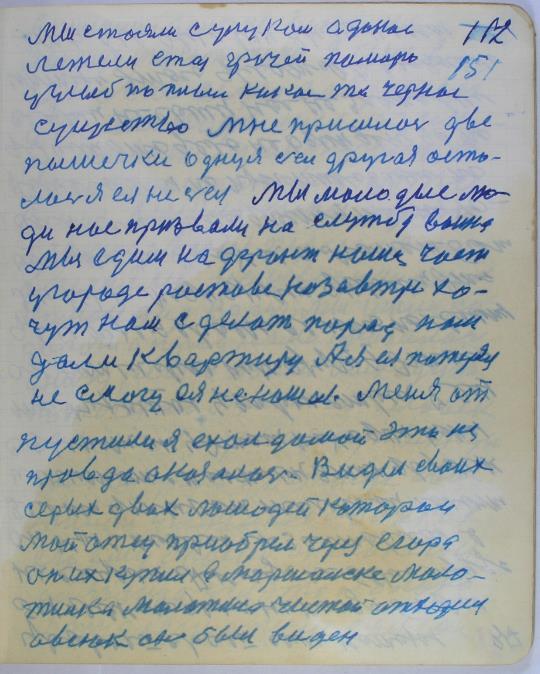 Мы стояли с руком а домос 112
летели стая грачей помарь 151
у меб по тыли какое та черное
существо мне приснилос две
пышечки однуя сел другая оста-
лася я ея не сел Мы молодые лю-
ди нас призвали на службу война
мы едим на фронт наша част
у городе ростове, назавтри хо-
чут нам сделат парад нам
дали квартиру А я ея потерял
не смогу ея не нашол. Меня от
пустили я ехал домой это не
правда оказалос. Видел своих
серых двах лошодей которых
мой отец приобрел через Егора
он их купил в Моршанске моло-
тилка молотила чистой
овсюк он был виден